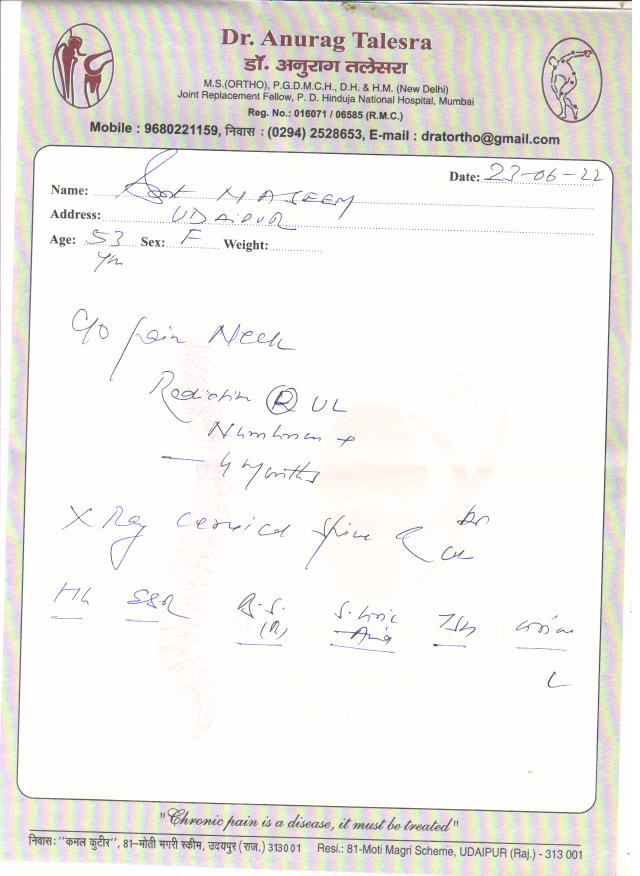 Dr. Anurag Talesra
डॉ. अनुराग तलेसरा
M.S.(ORTHO), P.G.D.M.C.H., D.H. & H.M. (New Delhi)
Joint Replacement Fellow, P. D. Hinduja National Hospital, Mumbai
Reg. No.: 016071 / 06585 (R.M.C.)
Mobile : 9680221159, निवास : (0294) 2528653, E-mail : dratortho@gmail.com
Date: 23-06-22
Name:
Address: UDAIPUR
Age: 53 Sex: F Weight:
yrs
C/o pain Neck
Radiation R UL
Numbness +
— 4 months
X Ray cervical spine
Hb ESR B.S. S. Uric TSH Urine
(R) Acid
"Chronic pain is a disease, it must be treated"
निवास: "कमल कुटीर", 81-मोती मगरी स्कीम, उदयपुर (राज.) 313001 Resi.: 81-Moti Magri Scheme, UDAIPUR (Raj.) - 313 001